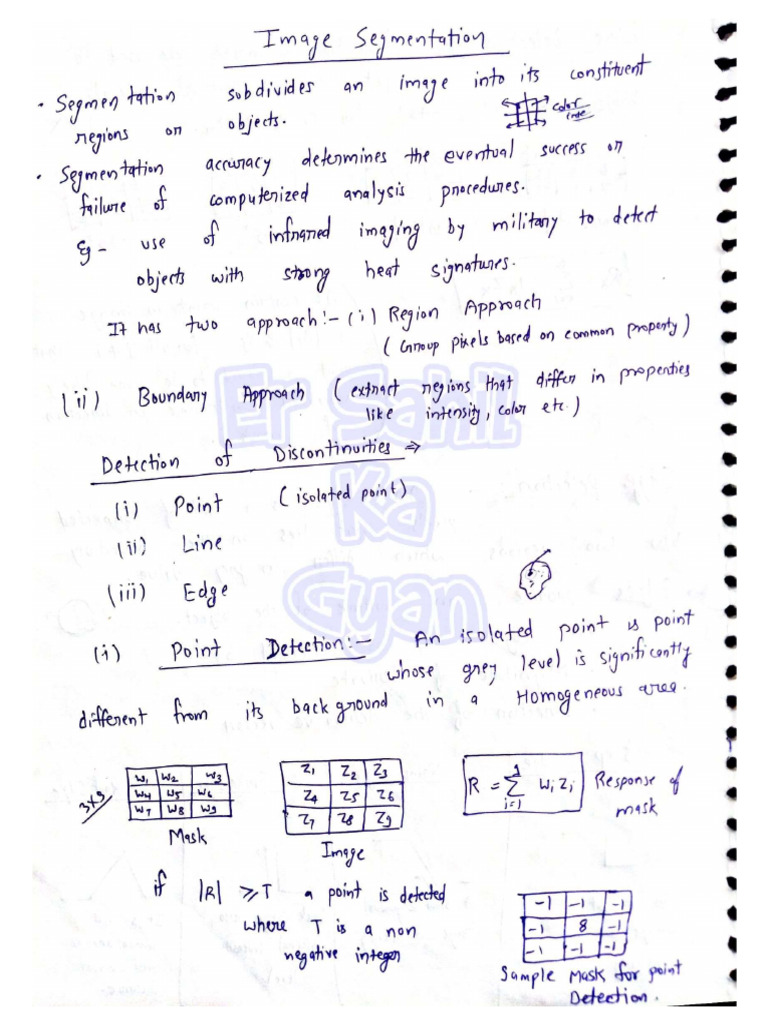 Image Segmentation
• Segmentation subdivides an image into its constituent
regions or objects.
color
• Segmentation accuracy determines the eventual success or
failure of computerized analysis procedures.
Eg - use of infrared imaging by military to detect
objects with strong heat signatures.
It has two approach:- (i) Region Approach
(Group pixels based on common property)
(ii) Boundary Approach (extract regions that differ in properties
like intensity, color etc.)
Detection of Discontinuities ⇒
(i) Point (isolated point)
(ii) Line
(iii) Edge
(i) Point Detection:- An isolated point is point
whose grey level is significantly
different from its background in a Homogeneous area.
3*3
W1 W2 W3
W4 W5 W6
W7 W8 W9
Mask
Z1 Z2 Z3
Z4 Z5 Z6
Z7 Z8 Z9
Image
R = 9 Σ i=1 Wi Zi Response of
mask
if |R| ⩾ T a point is detected
where T is a non
negative integer
-1 -1 -1
-1 8 -1
-1 -1 -1
Sample Mask for point
Detection.
Er Sahil
Ka
Gyan